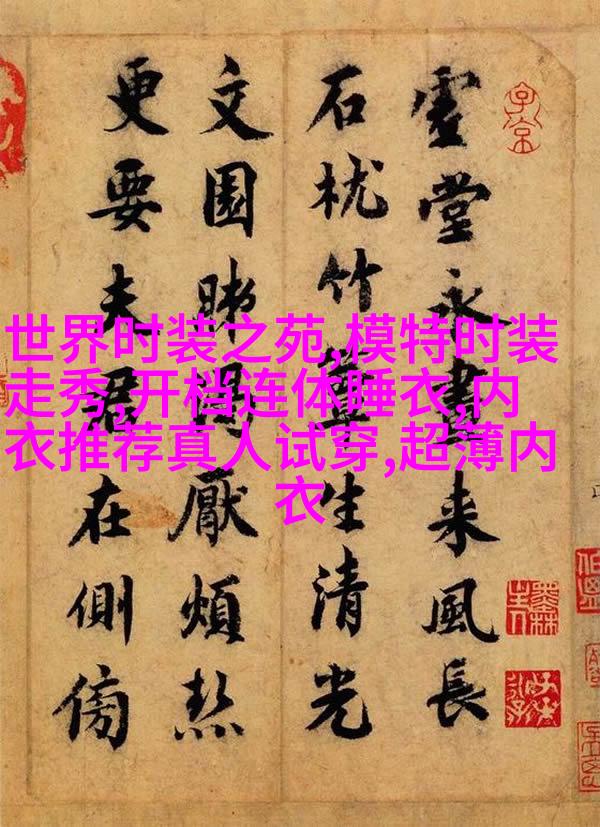 虛堂永晝来風長
石枕竹簟生清光
文園渴厭煩熱
更要夫君在側傍
世界时装之苑,模特时装
走秀,开档连体睡衣,内
衣推荐真人试穿,超薄内
衣